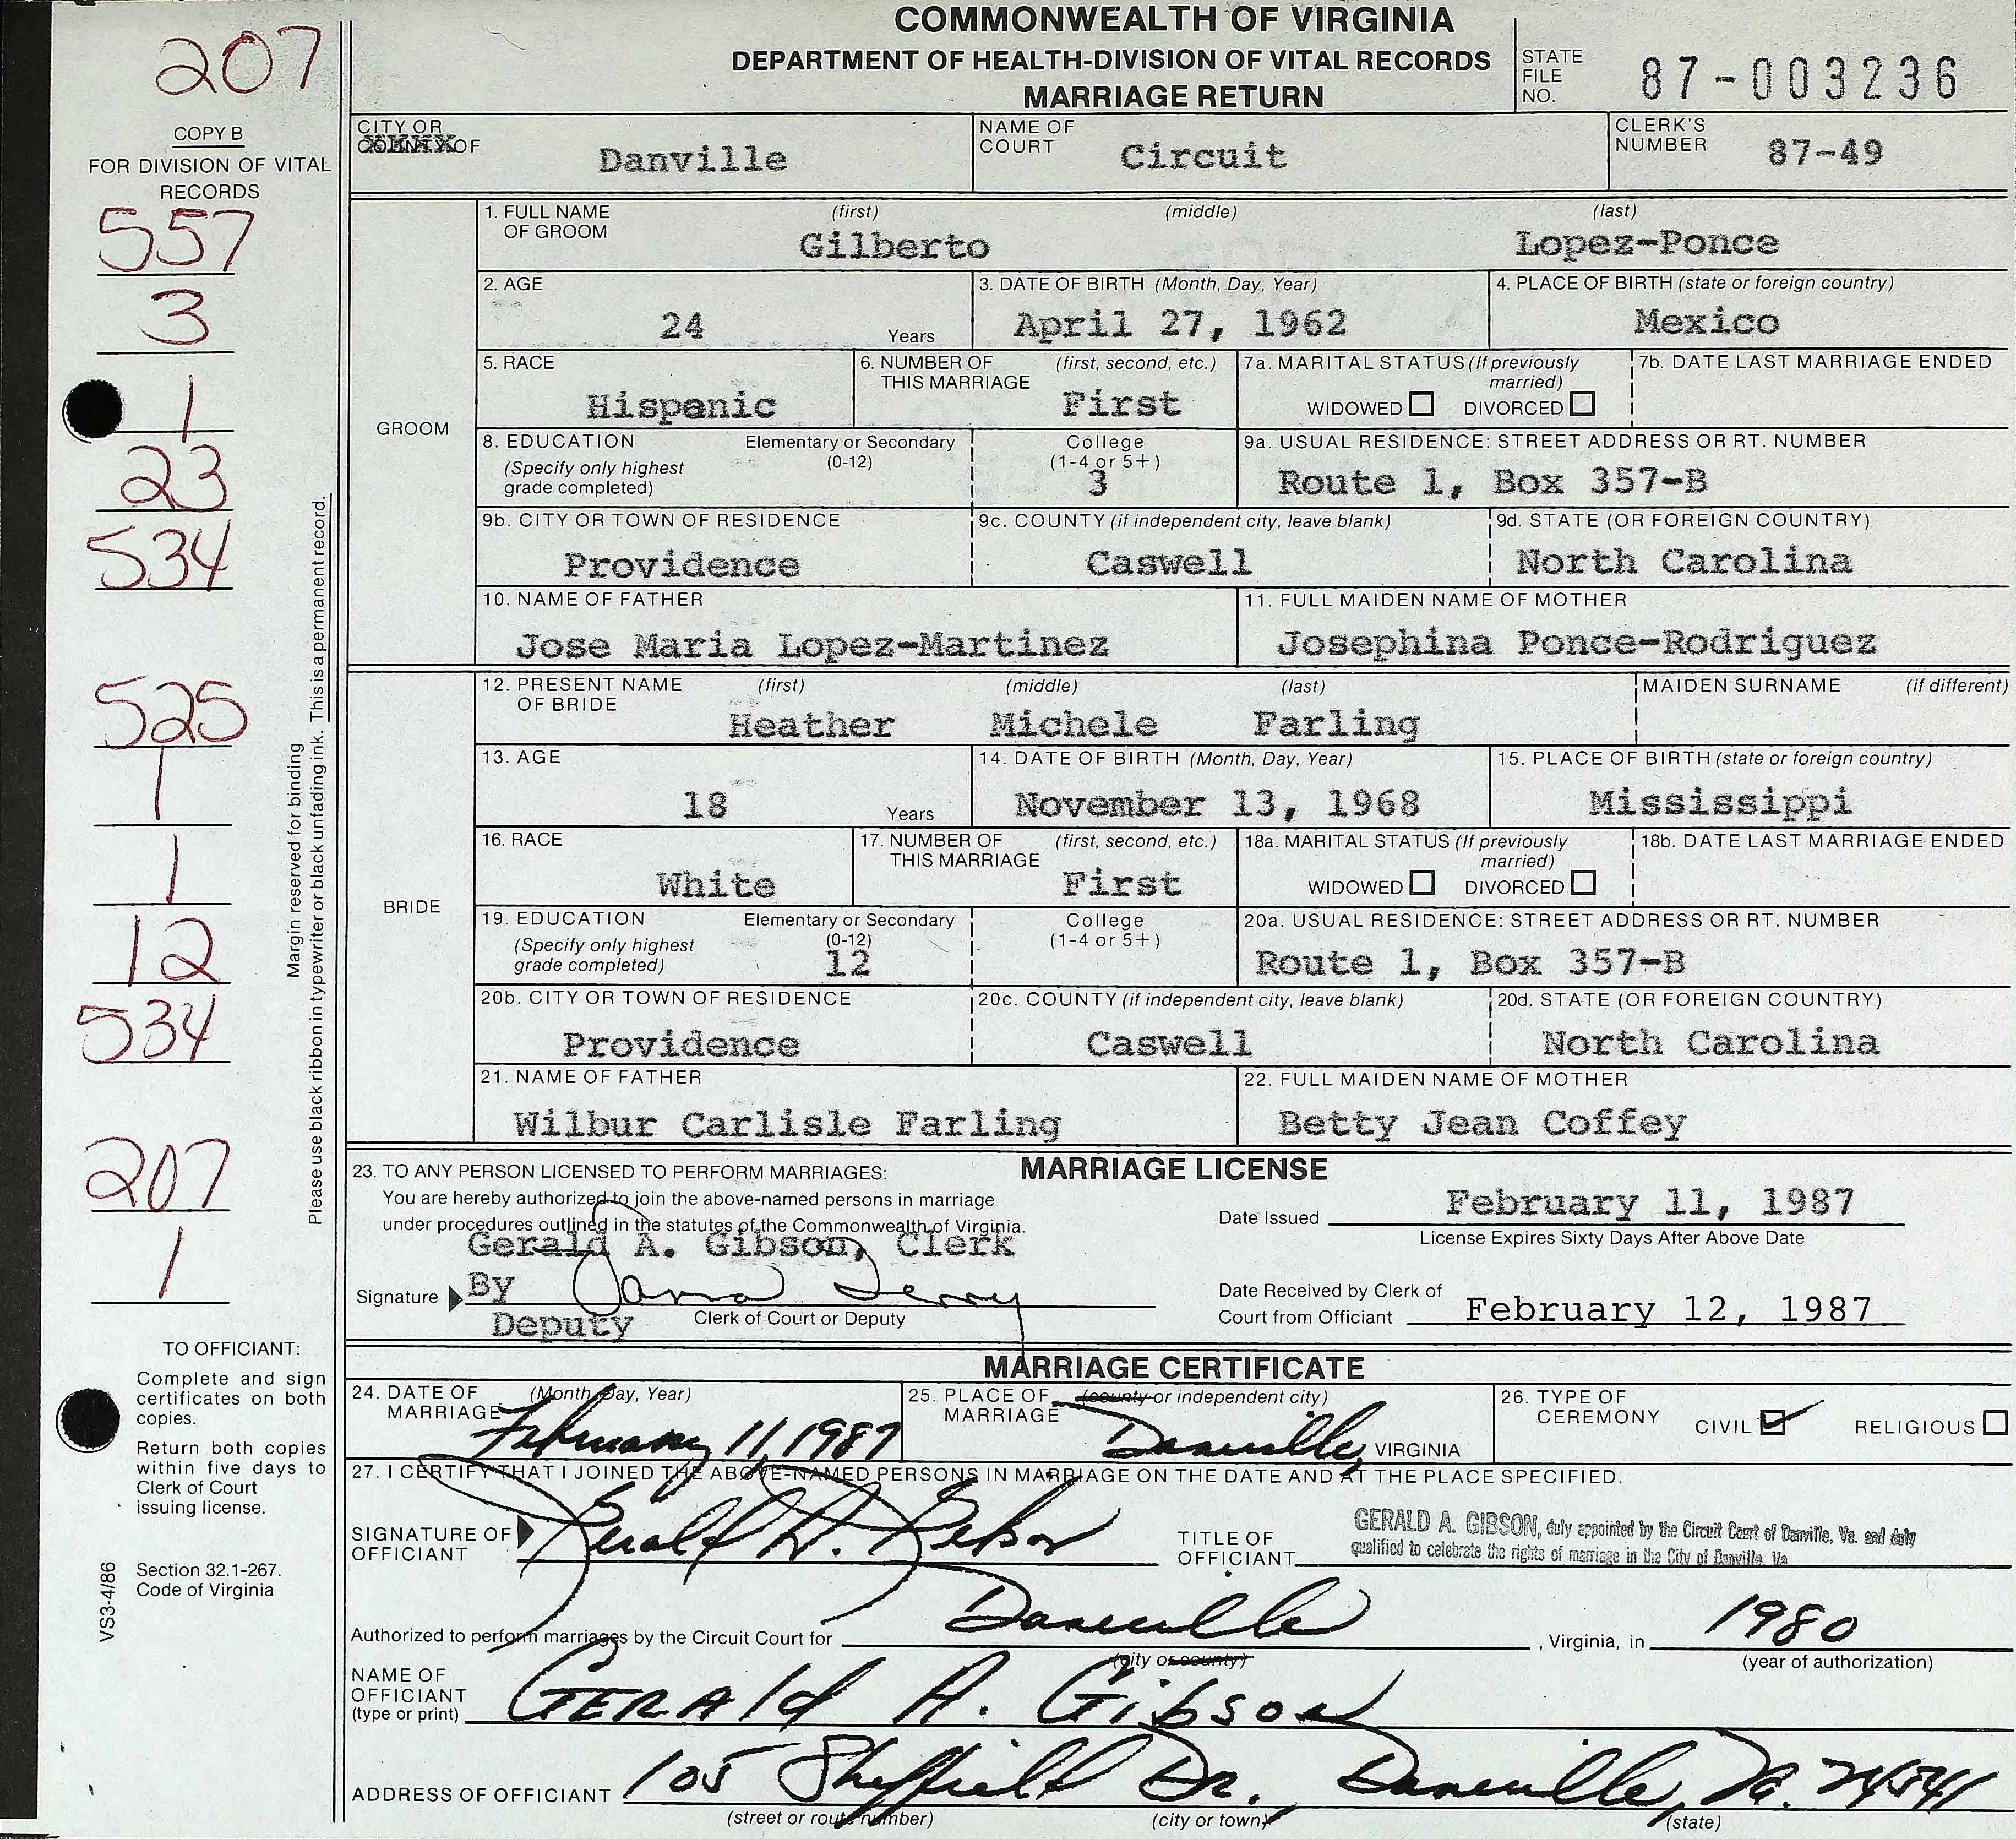 207
COPY B
FOR DIVISION OF VITAL
RECORDS
557
3
1
23
534
525
1
1
12
534
207
1
Margin reserved for binding
Please use black ribbon in typewriter or black unfading ink. This is a permanent record.
TO OFFICIANT:
Complete and sign
certificates on both
copies.
Return both copies
within five days to
Clerk of Court
issuing license.
Section 32.1-267.
Code of Virginia
VS3-4/86
COMMONWEALTH OF VIRGINIA
DEPARTMENT OF HEALTH-DIVISION OF VITAL RECORDS
MARRIAGE RETURN
STATE
FILE
NO.
87-003236
CITY OR
COUNTY OF
Danville
NAME OF
COURT
Circuit
CLERK'S
NUMBER
87-49
GROOM
1. FULL NAME (first) (middle) (last)
OF GROOM
Gilberto Lopez-Ponce
2. AGE
24 Years
3. DATE OF BIRTH (Month, Day, Year)
April 27, 1962
4. PLACE OF BIRTH (state or foreign country)
Mexico
5. RACE
Hispanic
6. NUMBER OF (first, second, etc.)
THIS MARRIAGE
First
7a. MARITAL STATUS (If previously
married)
WIDOWED DIVORCED
7b. DATE LAST MARRIAGE ENDED
8. EDUCATION Elementary or Secondary College
(Specify only highest (0-12) (1-4 or 5+)
grade completed) 3
9a. USUAL RESIDENCE: STREET ADDRESS OR RT. NUMBER
Route 1, Box 357-B
9b. CITY OR TOWN OF RESIDENCE
Providence
9c. COUNTY (if independent city, leave blank)
Caswell
9d. STATE (OR FOREIGN COUNTRY)
North Carolina
10. NAME OF FATHER
Jose Maria Lopez-Martinez
11. FULL MAIDEN NAME OF MOTHER
Josephina Ponce-Rodriguez
BRIDE
12. PRESENT NAME (first) (middle) (last)
OF BRIDE
Heather Michele Farling
MAIDEN SURNAME (if different)
13. AGE
18 Years
14. DATE OF BIRTH (Month, Day, Year)
November 13, 1968
15. PLACE OF BIRTH (state or foreign country)
Mississippi
16. RACE
White
17. NUMBER OF (first, second, etc.)
THIS MARRIAGE
First
18a. MARITAL STATUS (If previously
married)
WIDOWED DIVORCED
18b. DATE LAST MARRIAGE ENDED
19. EDUCATION Elementary or Secondary College
(Specify only highest (0-12) (1-4 or 5+)
grade completed) 12
20a. USUAL RESIDENCE: STREET ADDRESS OR RT. NUMBER
Route 1, Box 357-B
20b. CITY OR TOWN OF RESIDENCE
Providence
20c. COUNTY (if independent city, leave blank)
Caswell
20d. STATE (OR FOREIGN COUNTRY)
North Carolina
21. NAME OF FATHER
Wilbur Carlisle Farling
22. FULL MAIDEN NAME OF MOTHER
Betty Jean Coffey
23. TO ANY PERSON LICENSED TO PERFORM MARRIAGES:
You are hereby authorized to join the above-named persons in marriage
under procedures outlined in the statutes of the Commonwealth of Virginia.
MARRIAGE LICENSE
Date Issued February 11, 1987
License Expires Sixty Days After Above Date
Gerald A. Gibson, Clerk
Signature By Terry
Deputy Clerk of Court or Deputy
Date Received by Clerk of
Court from Officiant February 12, 1987
MARRIAGE CERTIFICATE
24. DATE OF (Month, Day, Year)
MARRIAGE
February 11, 1987
25. PLACE OF (county or independent city)
MARRIAGE
Danville, VIRGINIA
26. TYPE OF
CEREMONY CIVIL RELIGIOUS
27. I CERTIFY THAT I JOINED THE ABOVE-NAMED PERSONS IN MARRIAGE ON THE DATE AND AT THE PLACE SPECIFIED.
SIGNATURE OF
OFFICIANT
Gerald A. Gibson
TITLE OF
OFFICIANT
GERALD A. GIBSON, duly appointed by the Circuit Court of Danville, Va. and duly
qualified to celebrate the rights of marriage in the City of Danville, Va
Authorized to perform marriages by the Circuit Court for Danville , Virginia, in 1980
(city or county) (year of authorization)
NAME OF
OFFICIANT
(type or print)
GERAld A. Gibson
ADDRESS OF OFFICIANT 105 Sheffield Dr., Danville, Va. 24541
(street or route number) (city or town) (state)